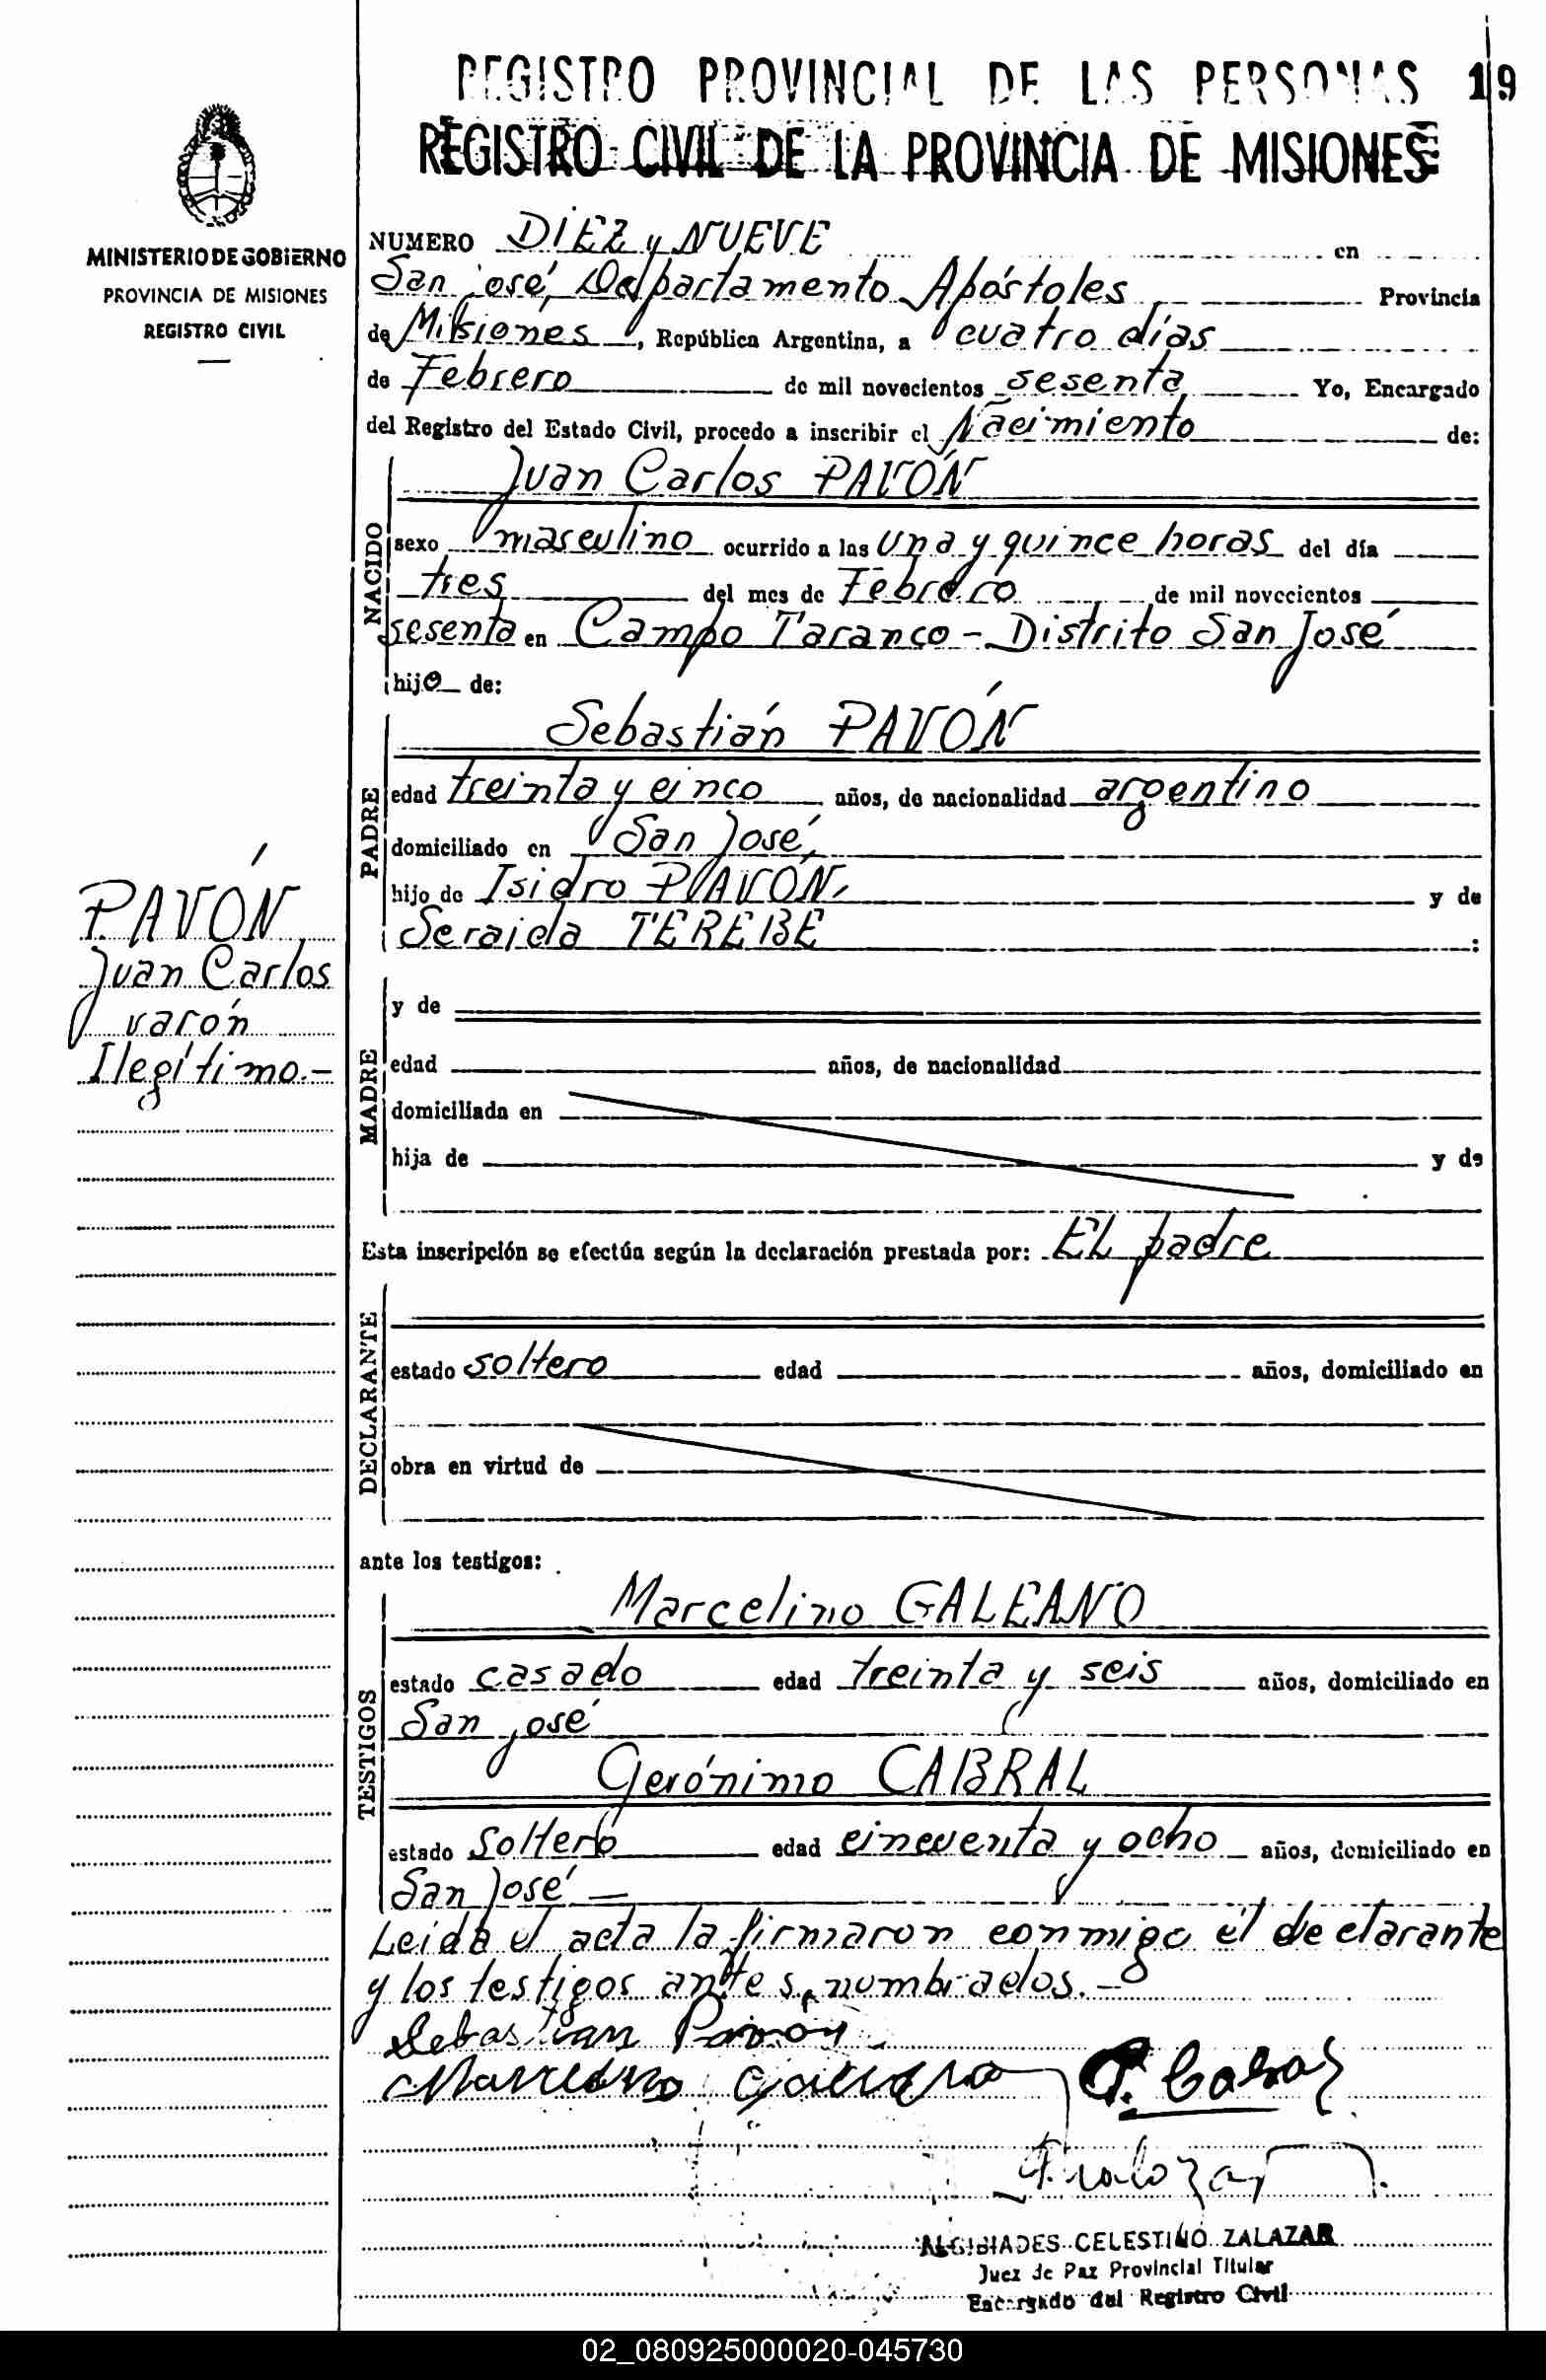 REGISTRO PROVINCIAL DE LAS PERSONAS 19
REGISTRO CIVIL DE LA PROVINCIA DE MISIONES
MINISTERIO DE GOBIERNO
PROVINCIA DE MISIONES
REGISTRO CIVIL
NUMERO DIEZ y NUEVE en
San José, Departamento Apóstoles Provincia
de Misiones, República Argentina, a cuatro días
de Febrero de mil novecientos sesenta Yo, Encargado
del Registro del Estado Civil, procedo a inscribir el Nacimiento de:
NACIDO
Juan Carlos PAVÓN
sexo masculino ocurrido a las una y quince horas del día
tres del mes de Febrero de mil novecientos
sesenta en Campo Taranco - Distrito San José
hijo de:
PADRE
Sebastián PAVÓN
edad treinta y cinco años, de nacionalidad argentino
domiciliado en San José,
hijo de Isidro PAVÓN, y de
Seraida TEREBE :
PAVÓN
Juan Carlos
varón
Ilegítimo.-
MADRE
y de
edad años, de nacionalidad
domiciliada en
hija de y de
Esta inscripción se efectúa según la declaración prestada por: EL padre
DECLARANTE
estado soltero edad años, domiciliado en
obra en virtud de
ante los testigos:
TESTIGOS
Marcelino GALEANO
estado casado edad treinta y seis años, domiciliado en
San José
Gerónimo CABRAL
estado soltero edad cincuenta y ocho años, domiciliado en
San José -
Leída el acta la firmaron conmigo el declarante
y los testigos antes nombrados.-
Sebastian Pavón
Marcelino Galeano G. Cabral
ALCIBIADES CELESTINO ZALAZAR
Juez de Paz Provincial Titular
Encargado del Registro Civil
02_080925000020-045730